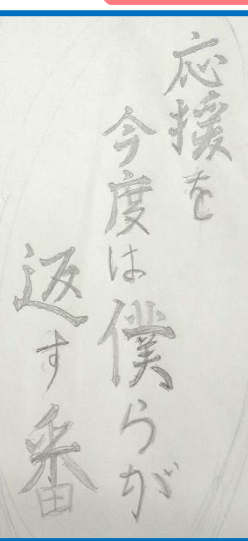 応援を
今度は僕らが
返す番